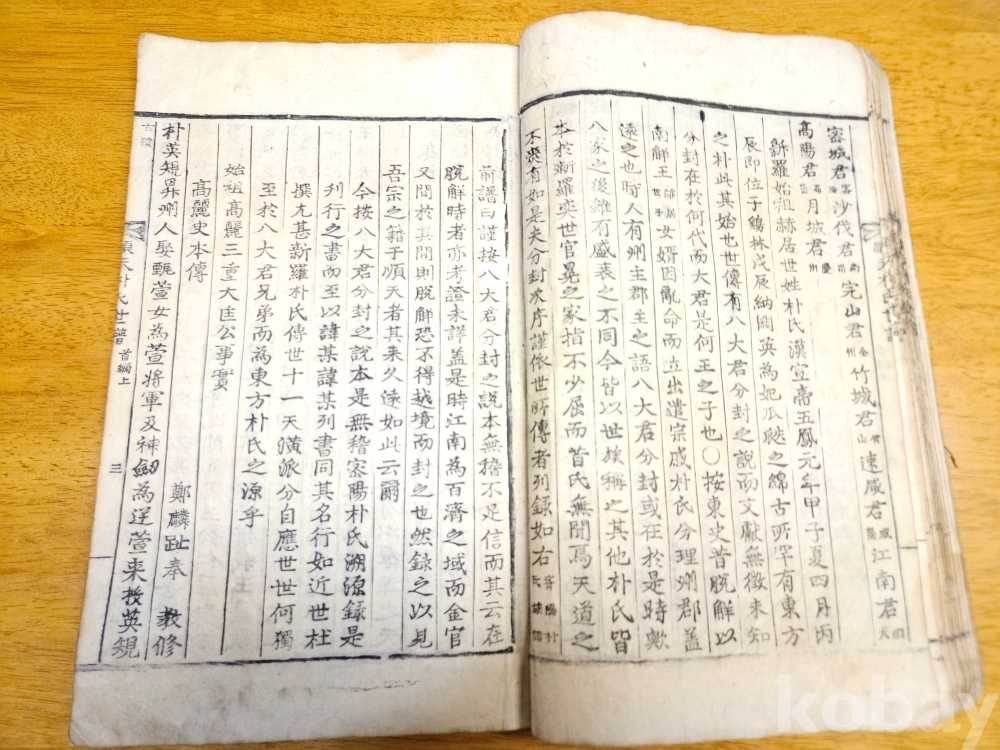 密城君 密陽 沙伐君 尙州 完山君 全州 竹城君 竹山 速咸君 咸 江南君
高陽君 高 月城君 慶州
新羅始祖赫居世姓朴氏漢宣帝五鳳元年甲子夏四月丙
辰即位于鷄林戊辰納閼英為妃瓜瓞之綿古所罕有東方
之朴此其始也世傳有八大君分封之說而文獻無徵未知
分封在於何代而大君是何王之子也〇按東史昔脫解以
南解王女婿因亂命而立出遣宗戚朴氏分理州郡盖
遠之也時人有州主郡主之語八大君分封或在於是時歟
八家之後雖有盛衰之不同今皆以世族稱之其他朴氏皆
本於新羅奕世官冕之家指不少屈而昔氏無聞焉天道之
不爽有如是夫分封次序謹依世所傳者列錄如右
前譜曰謹按八大君分封之說本無據不足信而其云在
脫解時者亦考證未詳盖是時江南為百濟之域而金官
又間於其間則脫解恐不得越境而封之也然錄之以見
吾宗之籍于順天者其来久遠如此云爾
今按八大君分封之說本是無稽密陽朴氏溯源錄是
列行之書而至以諱某諱某列書同其名行如近世杜
撰尤甚新羅朴氏傳世十一天潢派分自應世世何獨
至於八大君兄弟而為東方朴氏之源乎
始祖高麗三重大匡公事實
高麗史本傳
鄭麟趾奉 教修
朴英規昇州人娶甄萱女為萱將軍及神劒為逆萱来投英規
順天朴氏世譜 首編上 三